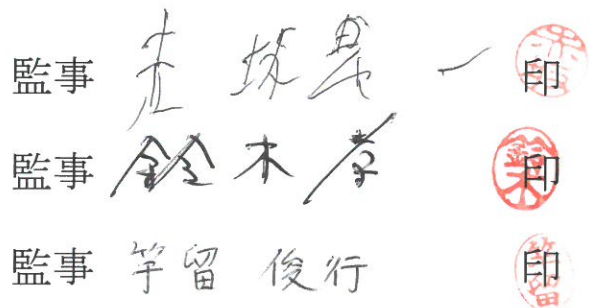 監事 赤塚 晨一 印
監事 鈴木 孝 印
監事 竿留 俊行 印